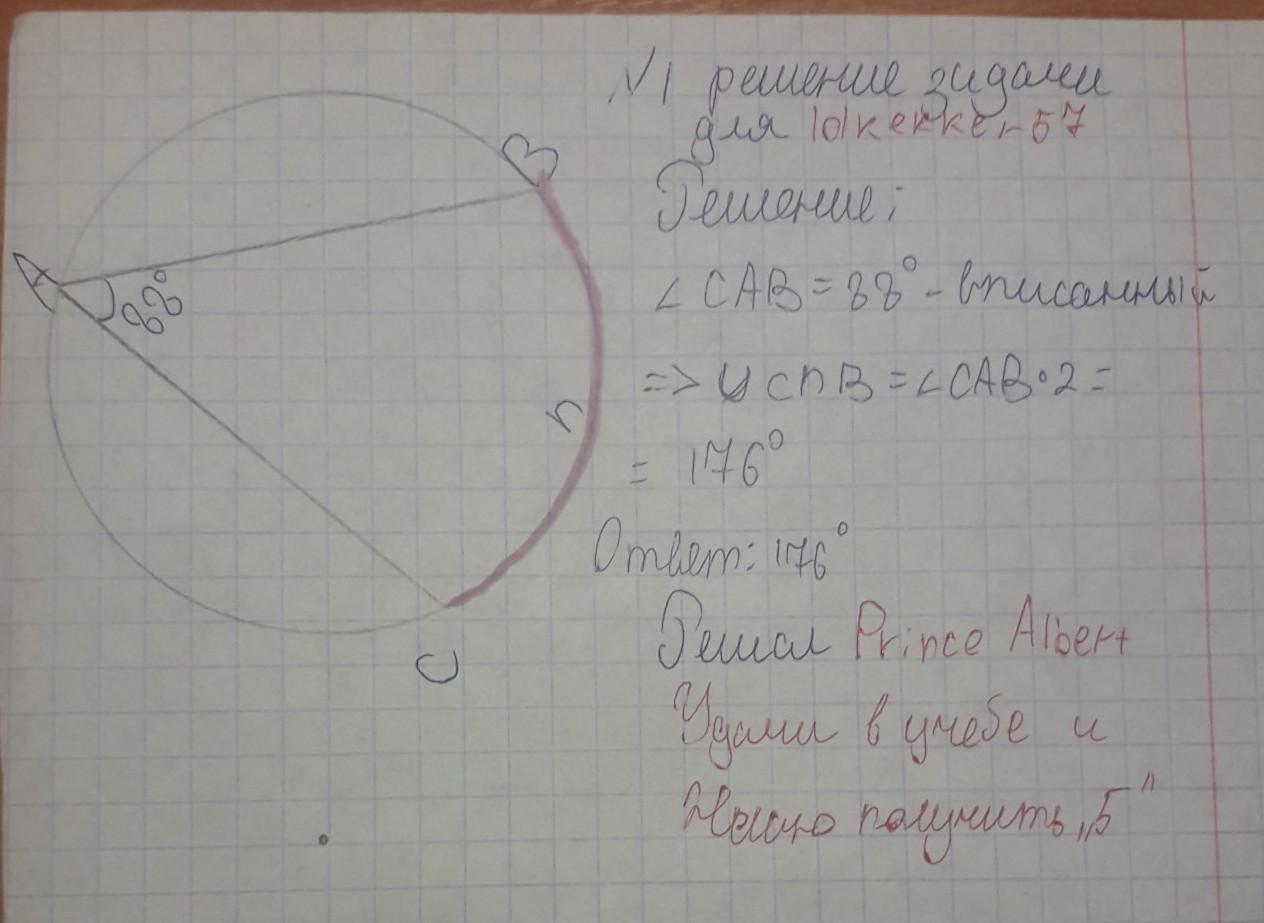 A
B
88°
n
C
№1 решение задачи
для
Решение:
∠ CAB = 88° - вписанный
=> ∪ CnB = ∠CAB • 2 =
= 176°
Ответ: 176°
Решал Prince Albert
Удачи в учебе и
Желаю получить „5"